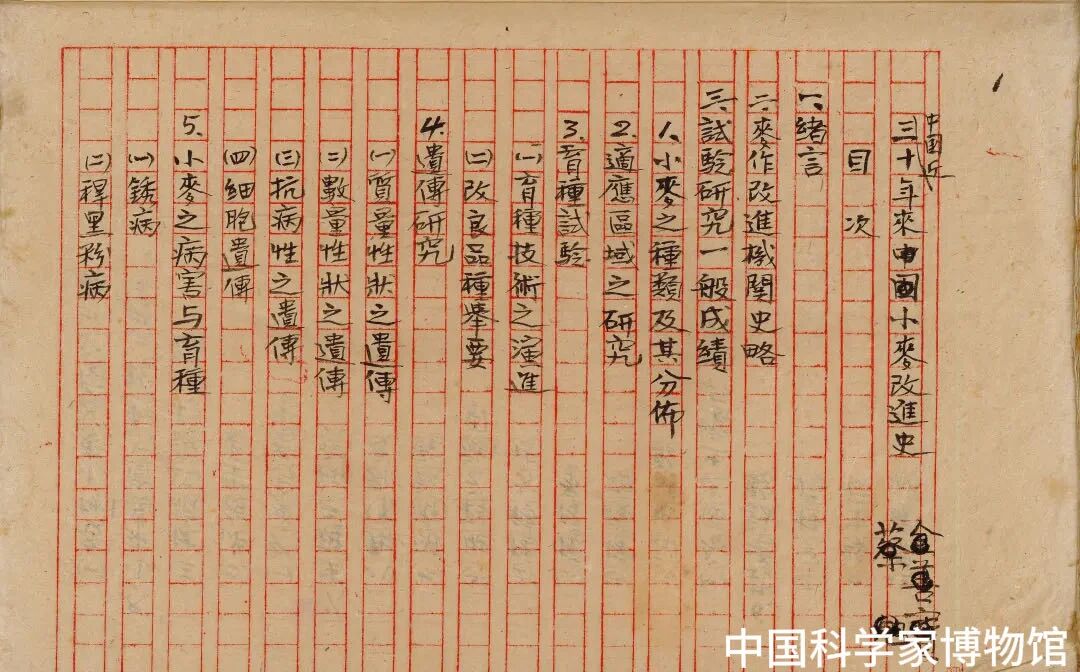 1
中国近
三十年來中國小麥改進史
金善宝
蔡旭
目次
一、緒言
二、麥作改進機関史略
三、試驗研究一般成績
1、小麥之種類及其分佈
2、適應區域之研究
3、育種試驗
(一)育種技術之演進
(二)改良品種舉要
4、遺傳研究
(一)質量性狀之遺傳
(二)數量性狀之遺傳
(三)抗病性之遺傳
(四)細胞遺傳
5、小麥之病害与育種
(一)銹病
(二)稈黑粉病
中国科学家博物馆